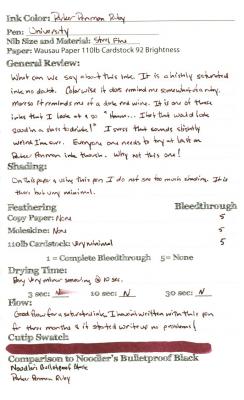 Ink Color: Parker Penman Ruby
Pen: University
Nib Size and Material: Steel Fine
Paper: Wausau Paper 110lb Cardstock 92 Brightness
General Review:
What can we say about this ink. It is a highly saturated
ink no doubt. Color wise it does remind me somewhat of a ruby.
More so it reminds me of a dark red wine. It is one of those
inks that I look at & go "hmmm... I bet that would look
good in a glass to drink!" I guess that sounds slightly
weird I'm sure. Everyone needs to try at least one
Parker Penman ink though. Why not this one!
Shading:
On this paper & using this pen I do not see too much shading. It is
there but very minimal.
Feathering Bleedthrough
Copy Paper: None 5
Moleskine: None 5
110lb Cardstock: Very minimal 5
1 = Complete Bleedthrough 5= None
Drying Time:
Very very minor smearing @ 10 sec.
3 sec: N 10 sec: N 30 sec: N
Flow:
Good flow for a saturated ink. I haven't written with this pen
for three months & it started write up no problems!
Cutip Swatch
Comparison to Noodler's Bulletproof Black
Noodler's Bulletproof Black
Parker Penman Ruby